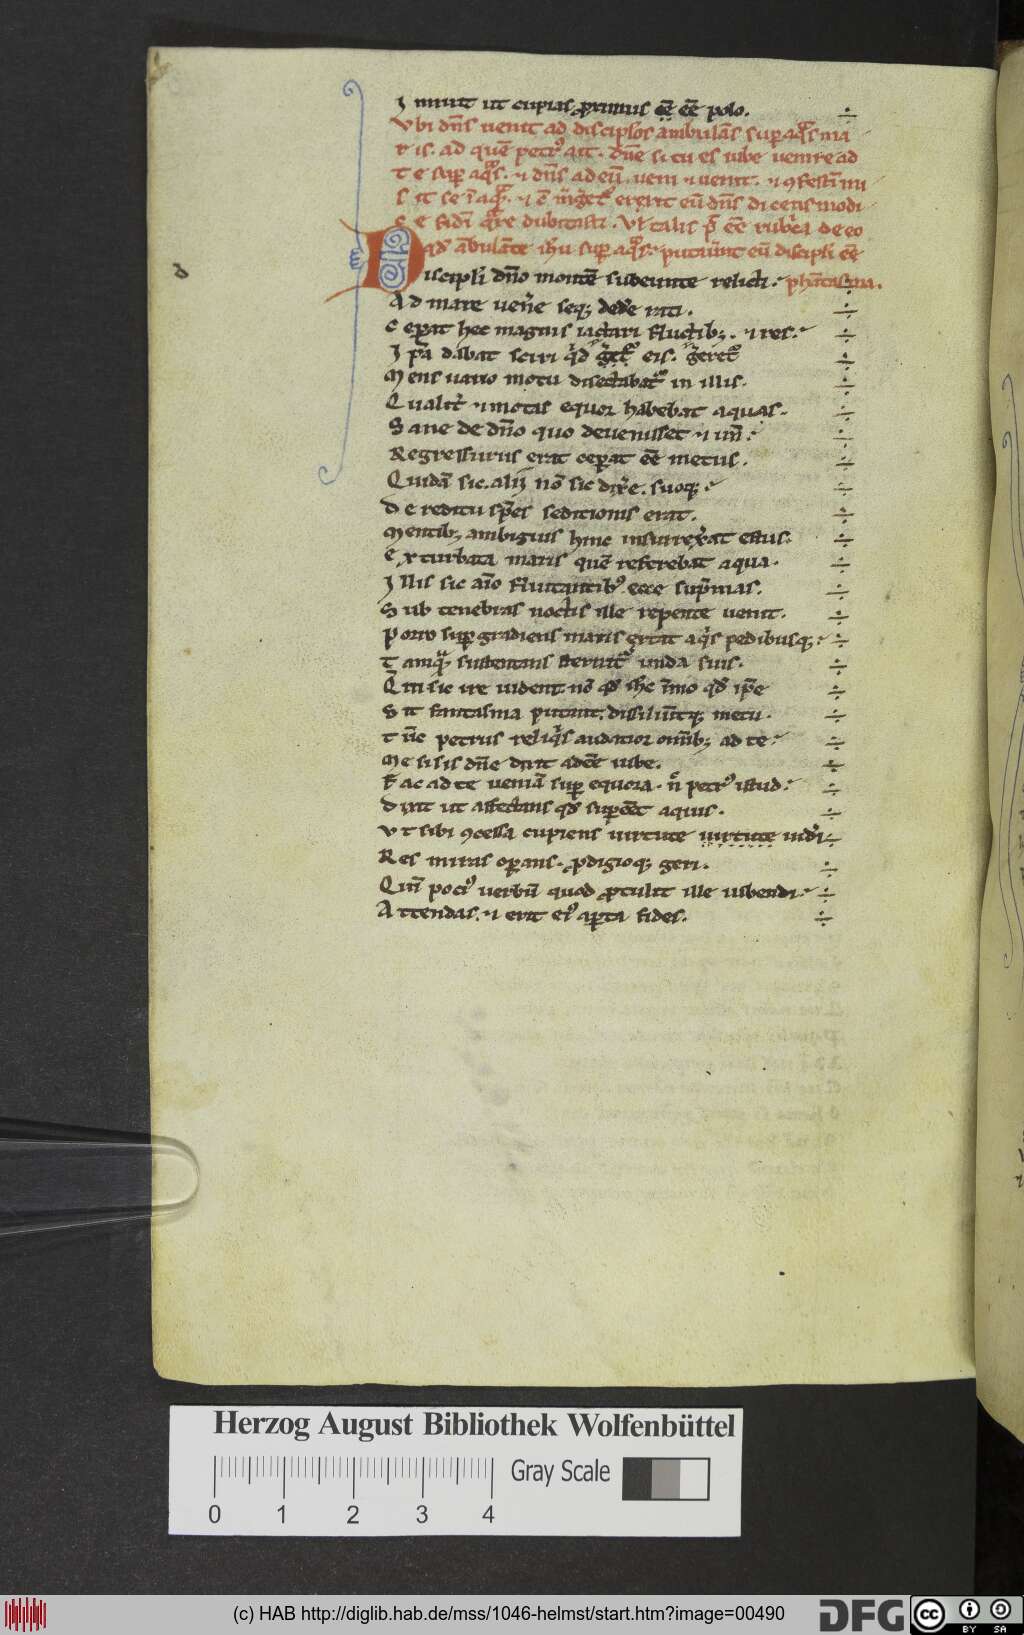 I nnuit ut cupias p̱rimus eē eē polo.
V bi dn̄s uenit ad disciplos ambulās sup aq̄s ma
r is. ad quē petr9 ait. dn̄e si tu es iube uenire ad
t e sup aq̄s. ⁊ dn̄s ad eū. ueni ⁊ uenit.
s it se ī aq̄. erexit eū dn̄s dicens modi
c e fidei q̄re dubitasti. Vł talis p̄ eē rubͥca de eo
qd' ābulāte ihu sup aq̄s. putauer̄t eū discipli eē
phātasma.
D iscipłi dn̄o montē subeunte relicti.
A d mare uenēe seq; dedēe rati.
C eperat hec magnis iactari fluctib;. ⁊ res.
I p̄a dabat sciri qͥd eis. gereret
M ens uario motu diſectabat' in illis.
Q ualit' ⁊ motas equor habebat aquas.
S ane de dn̄o quo deuenisset ⁊ un̄.
R egressurus erat ceperat eē metus.
Q uidā sic. alij nō sic dix̄e. suoq;
D e reditu sp̄es seditionis erat.
M entib; ambiguis hinc insurrex̄at estus.
E x turbata maris quē referebat aqua.
I llis sic aīo fluitantib9 ecce sup̄mas.
S ub tenebras noctis ille repente uenit.
P orro supgradiens maris aqͥs pedibusq;
T amq̄ sustentans steruit' unda suis.
Q ui sic ire uident nō qd' ihc īmo qd' ip̄e
S it fantasma putant. dissiliūtq; metu.
T ūc petrus reliqͥs audatior omīb; ad te
M e si sis dn̄e dixit adeē iube.
F ac ad te ueniā sup equora. n̄ petr9 istud.
D ixit ut affectans qd' supeēt aquis.
V t sibi ꝯcessa cupiens uirtute uirtute uidͥi
R es miras operans. p̱digioq; geri.
Q uī poci9 uerbū quod p̱tulit ille iubendi.
A ttendas. ⁊ erit ei9 apta fides.
d
Herzog August Bibliothek Wolfenbüttel
0 1 2 3 4
Gray Scale
(c) HAB http://diglib.hab.de/mss/1046-helmst/start.htm?image=00490
DFG
cc BY SA